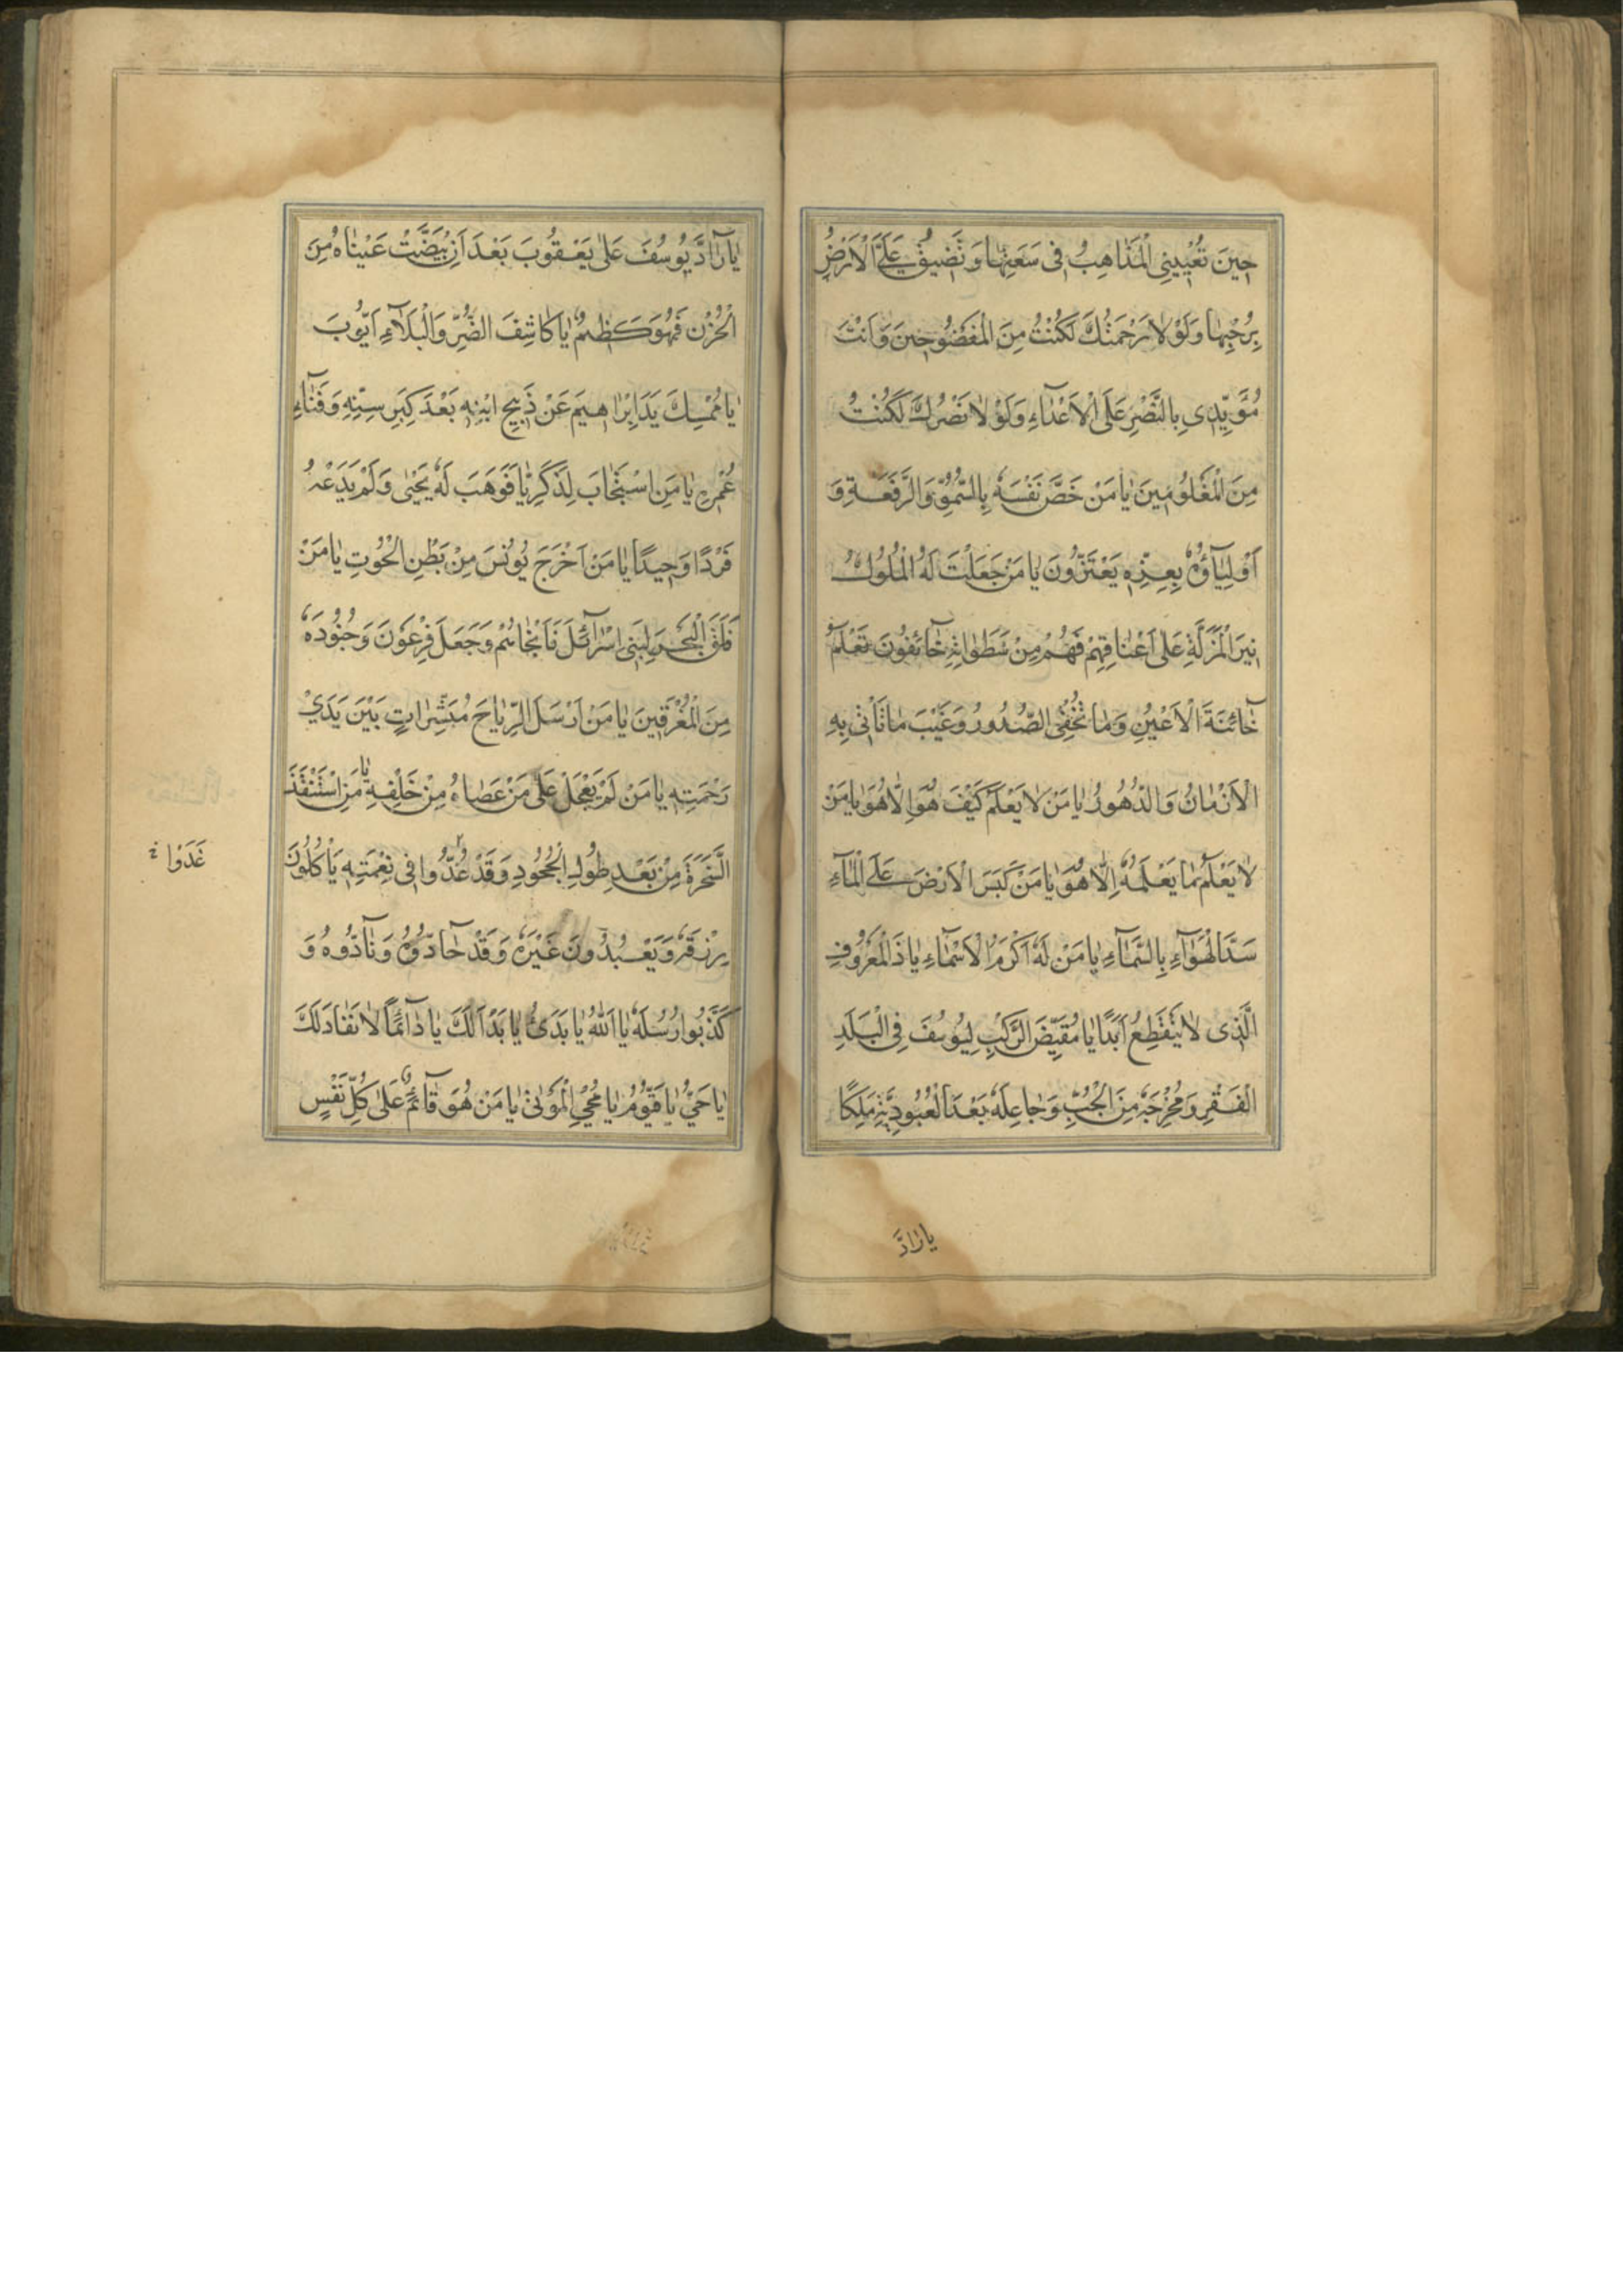 حِينَ تُعْيِينِى الْمَذَاهِبُ فِى سَعَتِهَا وَتَضِيقُ عَلَيَّ الْاَرْضُ
بِرُحْبِهَا وَلَوْلَا رَحْمَتُكَ لَكُنْتُ مِنَ الْمَفْضُوحِينَ وَاَنْتَ
مُؤَيِّدِى بِالنَّصْرِ عَلَى الْاَعْدَاءِ وَلَوْلَا نَصْرُكَ لَكُنْتُ
مِنَ الْمَغْلُوبِينَ يَا مَنْ خَصَّ نَفْسَهُ بِالسُّمُوِّ وَالرَّفْعَةِ وَ
اَوْلِيَآؤُهُ بِعِزِّهِ يَعْتَزُّونَ يَا مَنْ جَعَلَتْ لَهُ الْمُلُوكُ
نِيرَ الْمَذَلَّةِ عَلَى اَعْنَاقِهِمْ فَهُمْ مِنْ سَطَوَاتِهِ خَآئِفُونَ تَعْلَمُ
خَآئِنَةَ الْاَعْيُنِ وَمَا تُخْفِى الصُّدُورُ وَغَيْبَ مَا تَأْتِى بِهِ
الْاَزْمَانُ وَالدُّهُورُ يَا مَنْ لَا يَعْلَمُ كَيْفَ هُوَ اِلَّا هُوَ يَا مَنْ
لَا يَعْلَمُ مَا يَعْلَمُهُ اِلَّا هُوَ يَا مَنْ كَبَسَ الْاَرْضَ عَلَى الْمَآءِ
سَدَّ الْهَوَآءِ بِالسَّمَآءِ يَا مَنْ لَهُ اَكْرَمُ الْاَسْمَآءِ يَا ذَا لْمَعْرُوفِ
الَّذِى لَا يَنْقَطِعُ اَبَدًا يَا مُقَيِّضَ الرَّكْبِ لِيُوسُفَ فِى الْبَلَدِ
الْفَقْرِ وَمُخْرِجَهُ مِنَ الْجُبِّ وَجَاعِلَهُ بَعْدَ الْعُبُودِيَّةِ مَلِكًا
يَا رَادَّ
يَا رَآدَّ يُوسُفَ عَلَى يَعْقُوبَ بَعْدَ اَنِ ابْيَضَّتْ عَيْنَاهُ مِنَ
الْحُزْنِ فَهُوَ كَظِيمٌ يَا كَاشِفَ الضُّرِّ وَالْبَلَآءِ اَيُّوبَ
يَا مُمْسِكَ يَدَ اِبْرَاهِيمَ عَنْ ذَبِيحِ ابْنِهِ بَعْدَ كِبَرِ سِنِّهِ وَفَنَآءِ
عُمْرِهِ يَا مَنِ اسْتَجَابَ لِذَكَرِيَّا فَوَهَبَ لَهُ يَحْيٰى وَلَمْ يَدَعْهُ
فَرْدًا وَحِيدًا يَا مَنْ اَخْرَجَ يُونُسَ مِنْ بَطْنِ الْحُوتِ يَا مَنْ
فَلَقَ الْبَحْرَ لِبَنِى اِسْرَآئِلَ فَاَنْجَاهُمْ وَجَعَلَ فِرْعَوْنَ وَجُنُودَهُ
مِنَ الْمُغْرَقِينَ يَا مَنْ اَرْسَلَ الرِّيَاحَ مُبَشِّرَاتٍ بَيْنَ يَدَيْ
رَحْمَتِهِ يَا مَنْ لَمْ يَعْجَلْ عَلَى مَنْ عَصَاهُ مِنْ خَلْقِهِ يَا مَنِ اسْتَنْقَذَ
السَّحَرَةَ مِنْ بَعْدِ طُولِ الْجُحُودِ وَقَدْ غُدُّوا فِى نِعْمَتِهِ يَأْكُلُونَ
غَدَوْا
رِزْقَهُ وَيَعْبُدُونَ غَيْرَهُ وَقَدْ حَآدُّوهُ وَنَآدُّوهُ وَ
كَذَّبُوا رُسُلَهُ يَا اَللهُ يَا بَدِئُ يَا بَدْاَ لَكَ يَا دَآئِمًا لَا نَفَادَ لَكَ
يَا حَيُّ يَا قَيُّومُ يَا مُحْيِيَ الْمَوْتٰى يَا مَنْ هُوَ قَآئِمٌ عَلٰى كُلِّ نَفْسٍ